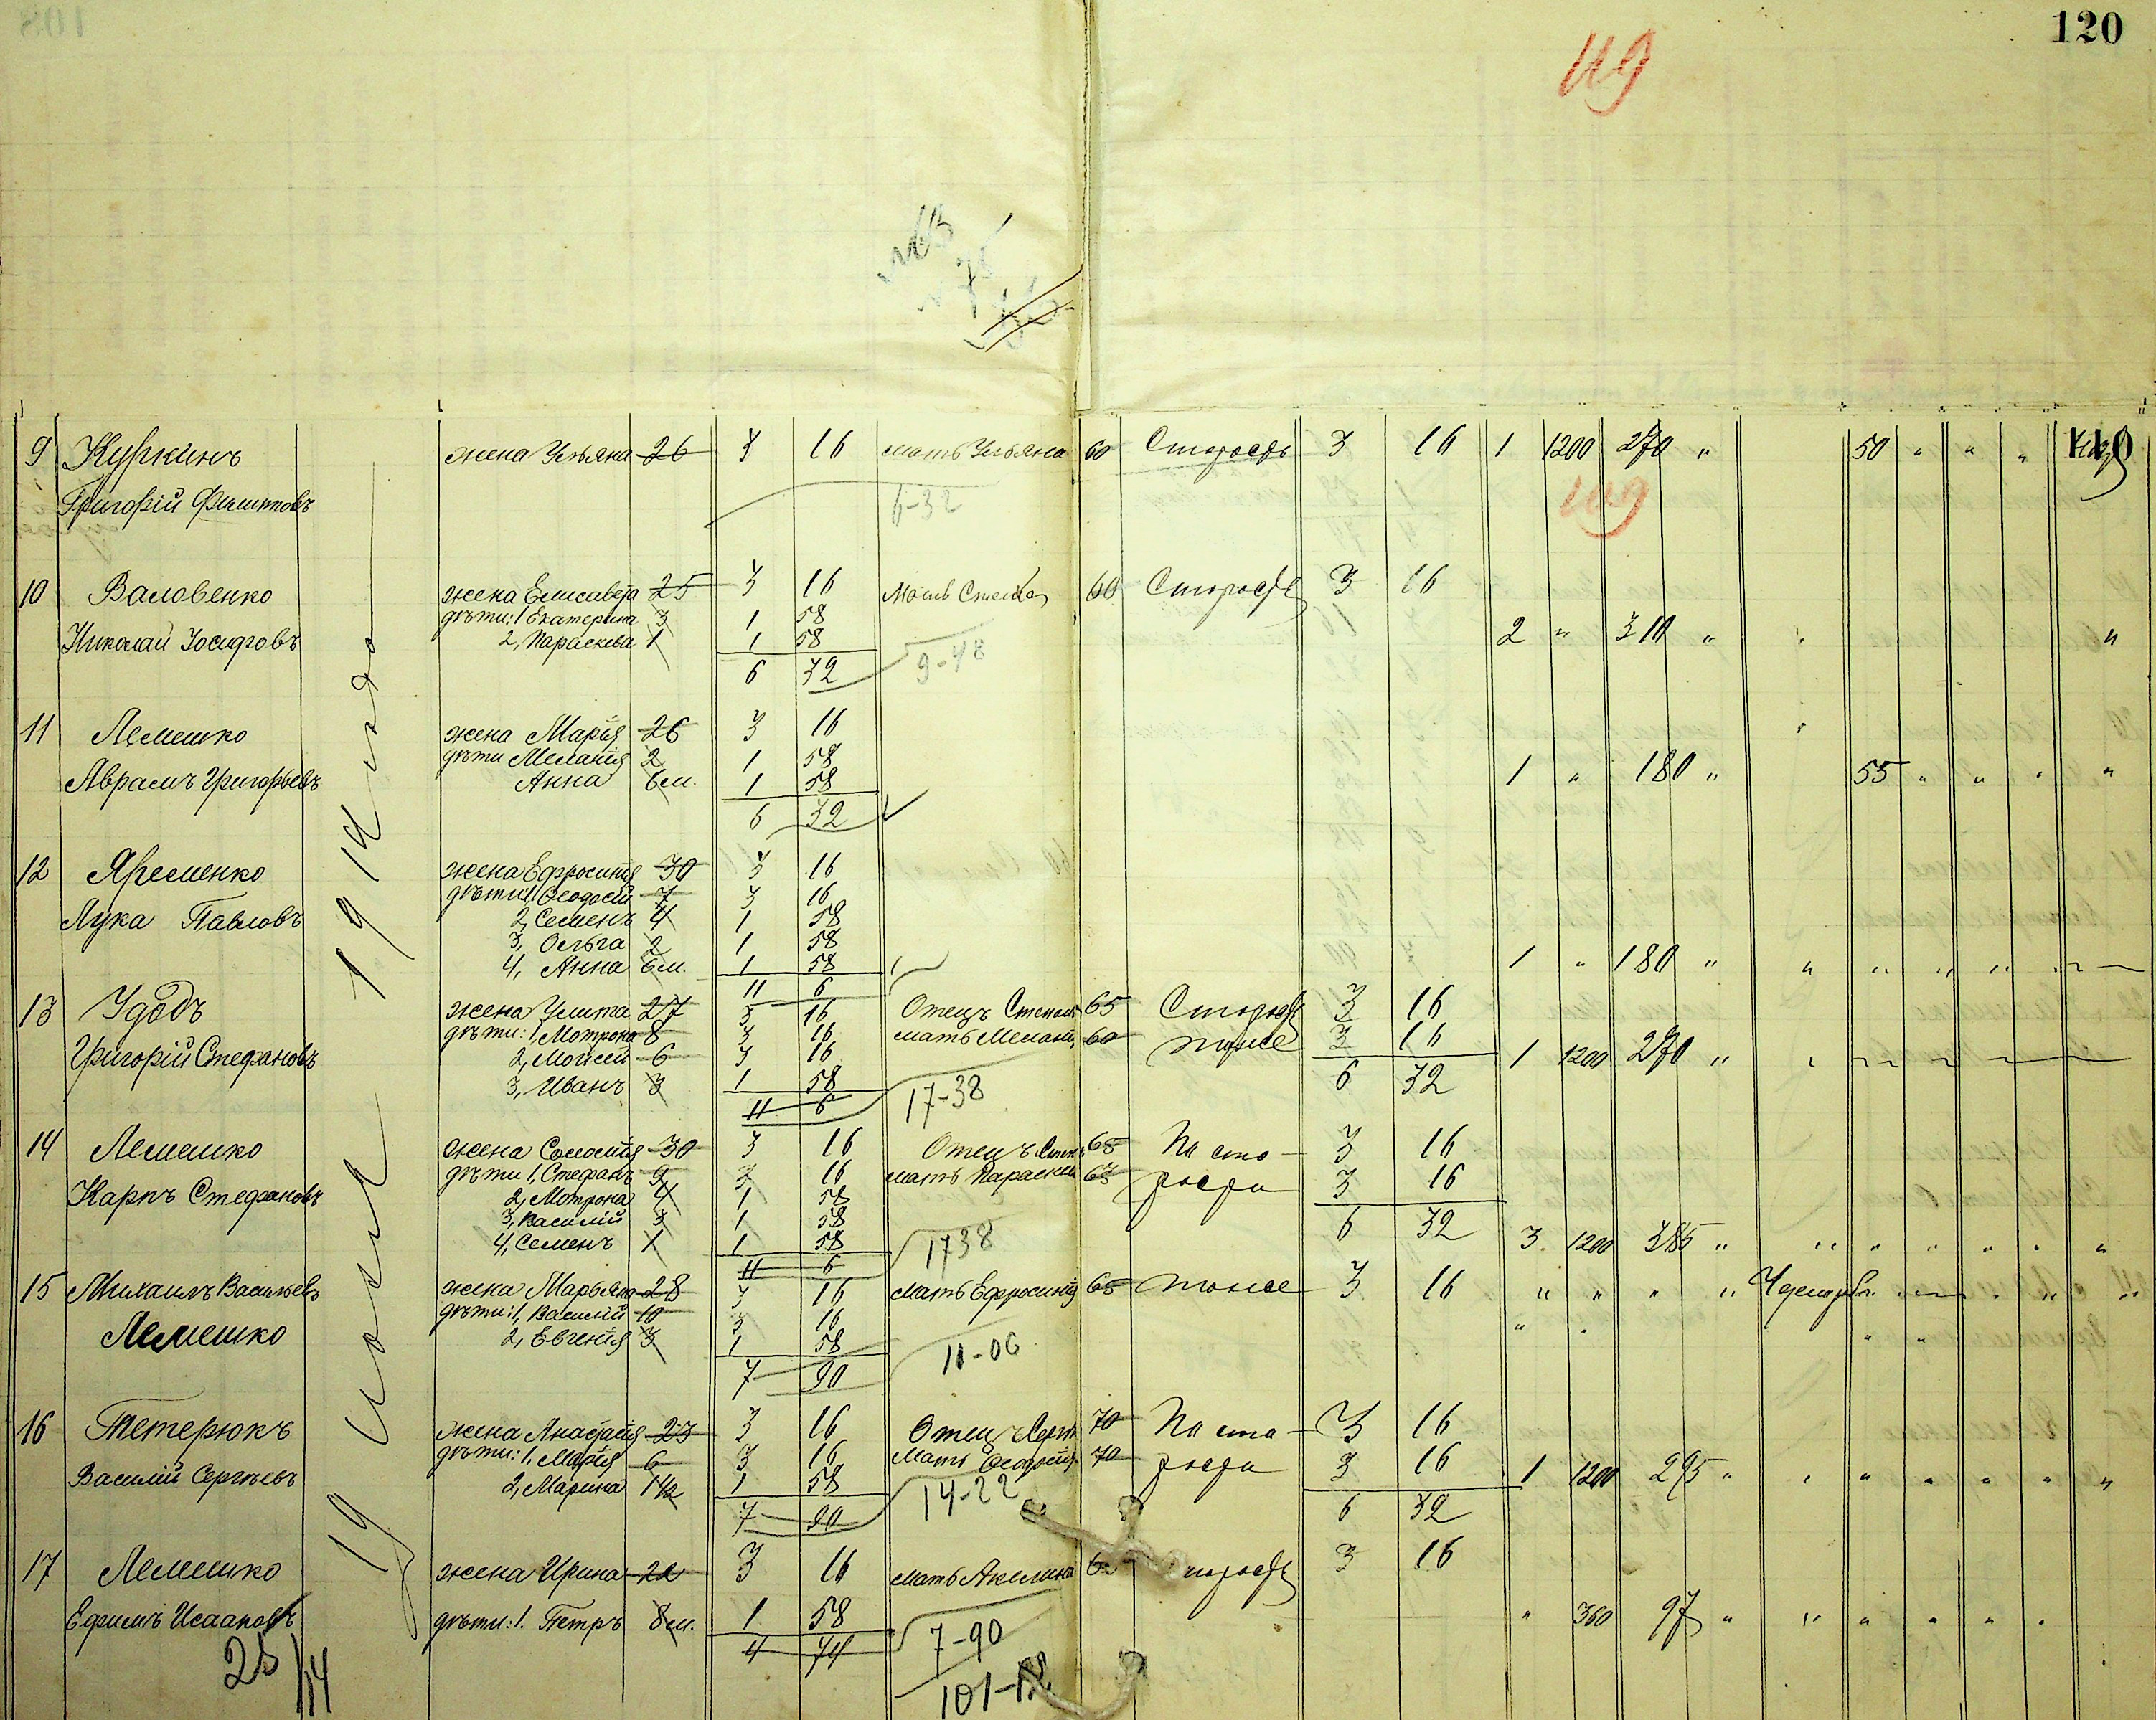 120
119
9 Куркинъ жена Ульяна 26 3 16 мать Ульяна 60 Старость 3 16 1 1200 270 " 50 " " " 110
Григорій Филиповъ 6-32 109
10 Валовенко жена Елисавета 25 3 16 Мать 60 Старость 3 16
дѣти: 1 Екатерина 3 1 58
Николай Іосифовъ 2, Параскева 1 1 58 2 " 310 " " "
6 32 9-48
11 Лемешко жена Марія 26 3 16
дѣти Меланія 2 1 58
Аврамъ Григорьевъ Анна 6 м. 1 58 1 " 180 " 55 " " " "
6 32
12 Яременко жена Ефросинія 30 3 16
дѣти: 1, Ѳеодосій 7 3 16
Лука Павловъ 2, Семенъ 4 1 58
3, Ольга 2 1 58
4, Анна 6 м. 1 58 1 " 180 " " " " " "
11 6
13 Удодъ жена Улита 27 3 16 Отецъ Степанъ 65 Старость 3 16
дѣти: 1, Мотрона 8 3 16 мать Мелан. 60 тоже 3 16
Григорій Стефановъ 2, Мойсей 6 3 16 1 1200 270 "
3, Иванъ 3 1 58 6 32
11 6 17-38
14 Лемешко жена Соломія 30 3 16 Отецъ 68 По ста- 3 16
дѣти 1, Стефанъ 9 3 16 мать Параскев. 63 рости 3 16
Карпъ Стефановъ 2, Мотрона 4 1 58
3, Василій 3 1 58 6 32
4, Семенъ 1 1 58 3 1200 385 " " " " " " "
11 6 17 38
15 Михаилъ Васильевъ жена Марьяна 28 3 16 мать Ефросинія 65 тоже 3 16 " " " "
дѣти: 1, Василій 10 3 16
Лемешко 2, Евгенія 3 1 58
7 90 11-06
16 Тетерюкъ жена Анастасія 23 3 16 Отецъ Сергѣй 70 По ста- 3 16
дѣти: 1, Марія 6 3 16 Мать Ѳеодосія 70 рости 3 16
Василій Сергѣевъ 2, Марина 1 1/2 1 58 1 1200 295 " " " " " " "
7 90 14-22 6 32
17 Лемешко жена Ирина 22 3 16 мать Акелина старость 3 16
Ефимъ Исааковъ дѣти: 1. Петръ 8 м. 1 58 " 360 97 " " " " " "
4 74 7-90
25/14 101-12
19 іюля 1914 года